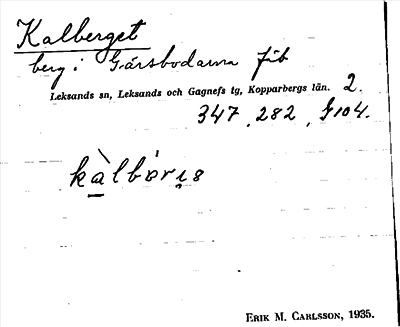 Kalberget
berg i Gärsbodarna fäb
Leksands sn, Leksands och Gagnefs tg, Kopparbergs län. 2.
347, 282, f104.
kàlbɵri̥s
ERIK M. CARLSSON, 1935.